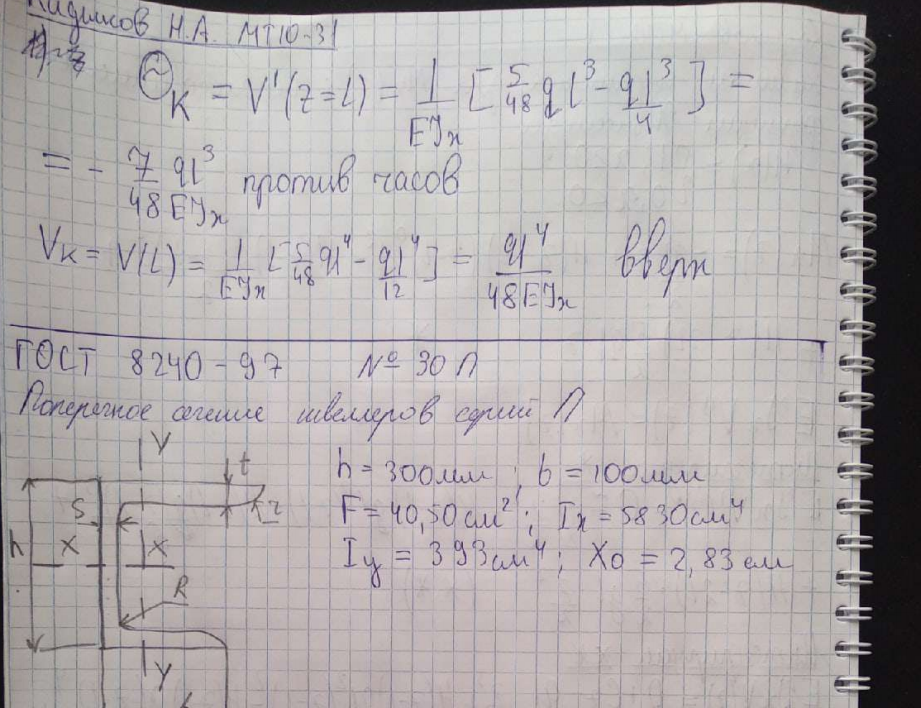 Н.А. МТ10-31
Θк = V'(z=l) = 1/EJx [5/48 ql³ - ql³/4] =
= - 7/48 ql³/EJx против часов
Vк = V(l) = 1/EJx [5/48 ql⁴ - ql⁴/12] = ql⁴/48EJx вверх
ГОСТ 8240-97 № 30 П
Поперечное сечение швеллеров серии П
Y
t
h = 300мм ; b = 100мм
S
r
F = 40,50см² ; Ix = 5830см⁴
h X X
Iy = 393см⁴ ; X0 = 2,83 см
R
Y